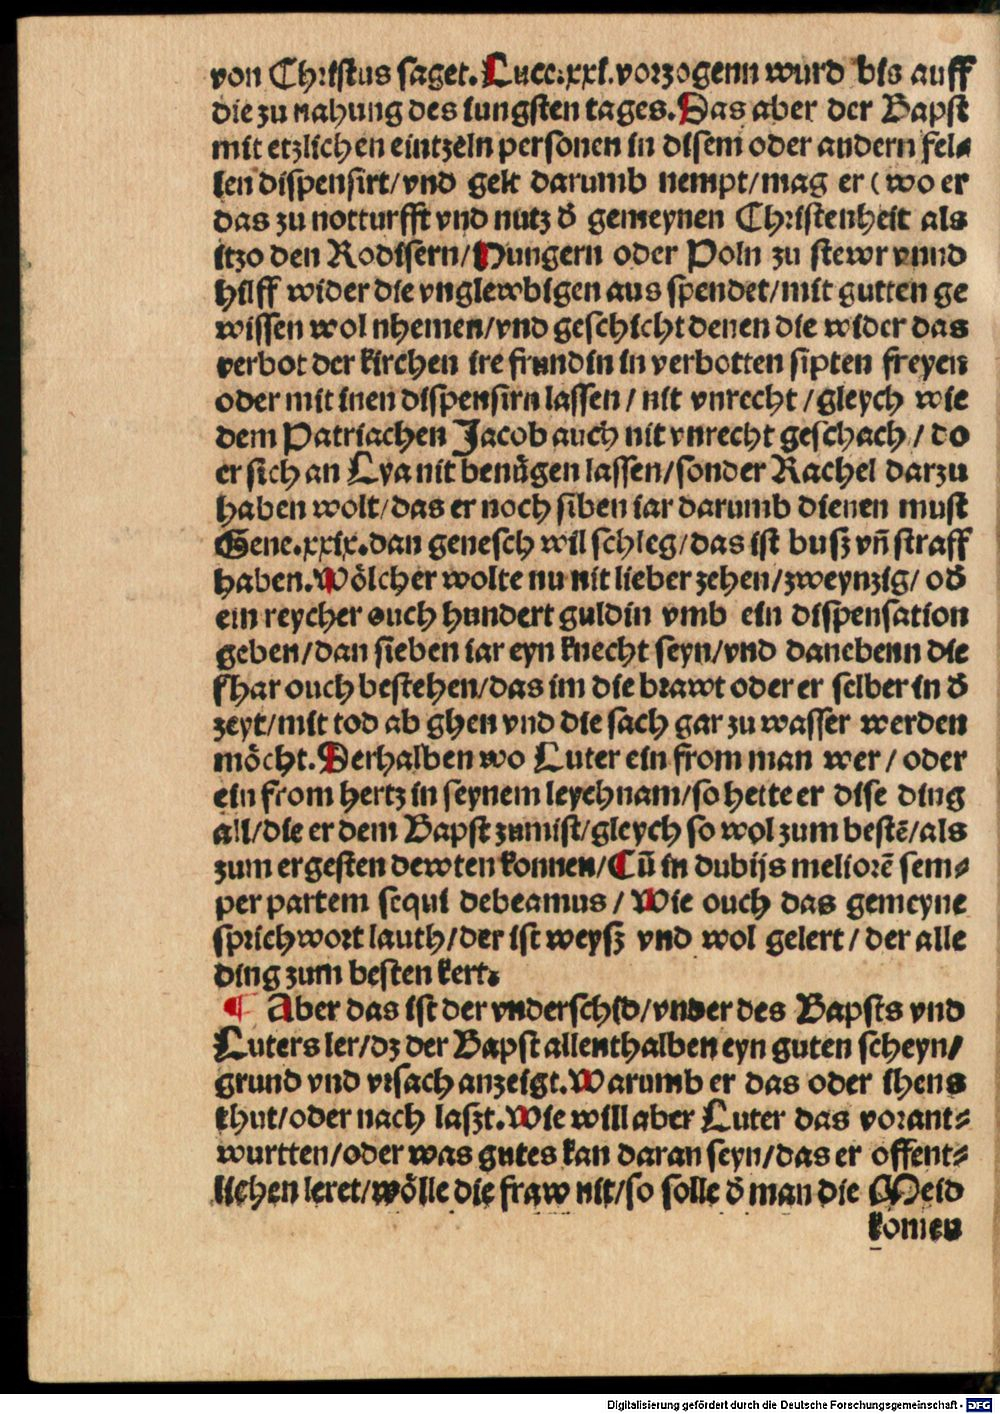 von Christus saget. Lucc.xxi. vorzogenn wurd bis auff
die zu nahung des iungsten tages. Das aber der Bapst
mit etzlichen eintzeln personen in disem oder andern fel⸗
len dispensirt/ vnd gelt darumb nempt/ mag er (wo er
das zu notturfft vnd nutz d̄ gemeynen Christenheit als
itzo den Rodisern/ Hungern oder Poln zu stewr vnnd
hilff wider die vnglewbigen aus spendet/ mit gutten ge
wissen wol nhemen/ vnd geschicht denen die wider das
verbot der kirchen ire frundin in verbotten sipten freyen
oder mit inen dispensirn lassen/ nit vnrecht/ gleych wie
dem Patriachen Jacob auch nit vnrecht geschach/ do
er sich an Lya nit benügen lassen/ sonder Rachel darzu
haben wolt/ das er noch siben iar darumb dienen must
Gene.xxix. dan genesch wil schleg/ das ist busz vn̄ straff
haben. Wölcher wolte nu nit lieber zehen/ zweynzig/ od̄
ein reycher ouch hundert guldin vmb ein dispensation
geben/ dan sieben iar eyn knecht seyn/ vnd danebenn die
fhar ouch bestehen/ das im die brawt oder er selber in d̄
zeyt/ mit tod ab ghen vnd die sach gar zu wasser werden
möcht. Derhalben wo Luter ein from man wer/ oder
ein from hertz in seynem leychnam/ so hette er dise ding
all/ die er dem Bapst zumist/ gleych so wol zum bestē/ als
zum ergesten dewten konnen/ Cū in dubijs meliorē sem⸗
per partem sequi debeamus/ Wie ouch das gemeyne
sprichwort lauth/ der ist weysz vnd wol gelert/ der alle
ding zum besten kert.
¶ Aber das ist der vnderschid/ vnder des Bapsts vnd
Luters ler/ dz der Bapst allenthalben eyn guten scheyn/
grund vnd vrsach anzeigt. Warumb er das oder ihens
thut/ oder nach laszt. Wie will aber Luter das vorant⸗
wurtten/ oder was gutes kan daran seyn/ das er offent⸗
lichen leret/ wölle die fraw nit/ so solle d̄ man die Meid
komen
Digitalisierung gefördert durch die Deutsche Forschungsgemeinschaft - DFG